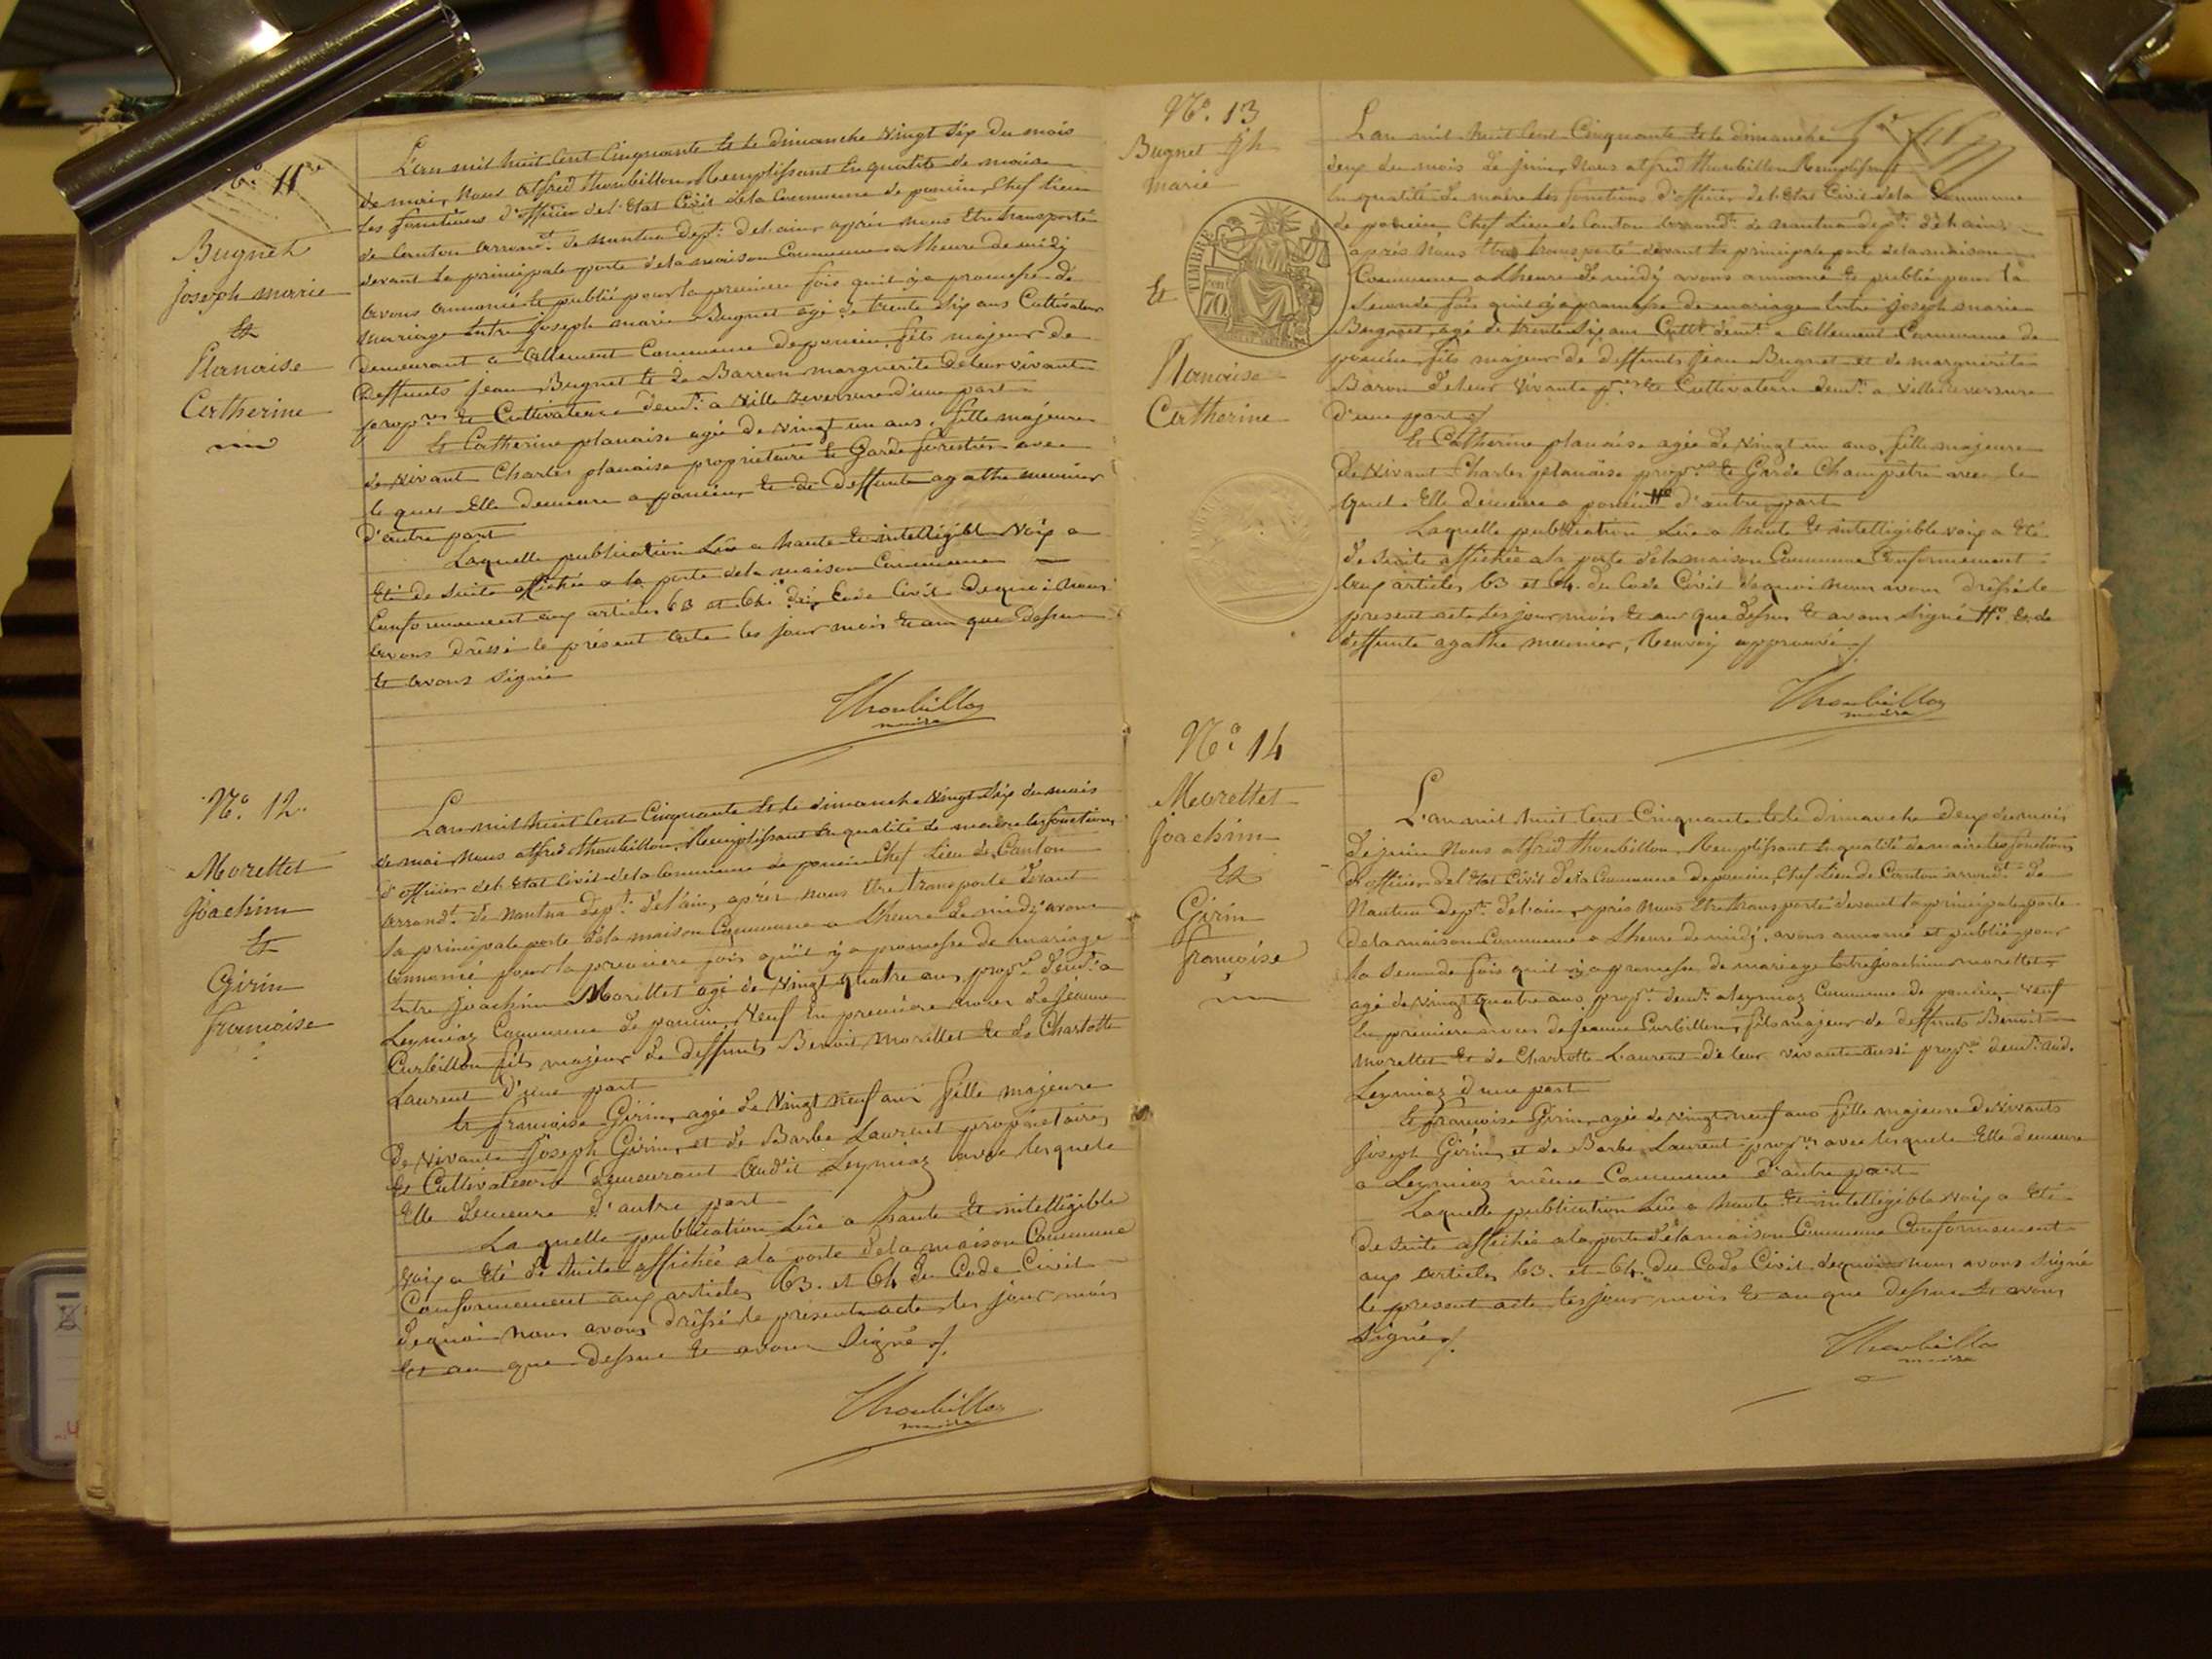 N.° 11.e
Bugnet
joseph marie
Et
Planaise
Catherine
L'an mil huit Cent Cinquante Et le dimanche vingt six du mois
de mai, nous alfred thoubillon, Remplissant En qualité de maire
les fonctions d'officier del'Etat Civil dela Commune de poncin, chef lieu
de Canton arrond.t de nantua dep.t delain, après nous Etre transporté
devant la principale porte dela maison Commune a lheure de midy
avons annoncé Et publié pour la premiere fois quil y a promesse de
mariage Entre joseph marie Bugnet agé de trente six ans Cultivateur
demeurant a allement Commune de poncin fils majeur de
deffunts jean Bugnet Et de Barron marguerite deleur vivant
prop.res Et Cultivateurs dem.t a Ville reversure d'une part
Et Catherine planaise agée de vingt un ans, fille majeure
de vivant Charles planaise proprietaire Et Garde forestier avec
le quel Elle demeure a poncin, Et de deffunte agathe meunier
d'autre part
Laquelle publication Lûe a haute Et intelligible voix a
Eté de suite affichée a la porte dela maison Commune
Conformement aux articles 63 et 64 du Code Civil Dequoi nous
avons drèssé le présent acte les jour mois Et an que dessus
Et avons signé
Thoubillon
maire
N.° 12.
Morettet
joachim
Et
Girin
francoise
L'an mil huit Cent Cinquante Et le dimanche vingt six du mois
de mai, nous alfred thoubillon, Remplissant En qualité de maire les fonctions
d'officier del'Etat Civil dela Commune de poncin Chef lieu de Canton
arrond.t de nantua dep.t delain, après nous Etre transporté devant
la principale porte dela maison Commune a Lheure de midy avons
annoncé pour la premiere fois quil y a promesse de mariage
Entre joachim Morettet agé de vingt quatre ans prop.re dem.t a
Leymiaz Commune de poncin, veuf En premiere noces de jeanne
Curbillon fils majeur de deffunts Benoit morettet Et de Charlotte
Laurent d'une part
Et francoise Girin, agée de vingt neuf ans fille majeure
de vivants Joseph Girin, et de Barbe Laurent proprietaires
Et Cultivateurs demeurant audit Leymiaz avec lesquels
Elle demeure d'autre part
La quelle publication Lûe a haute Et intelligible
voix a Eté de suite affichée ala porte dela maison Commune
Conformement aux articles 63. et 64 du Code Civil
dequoi nous avons drèssé le present acte les jour mois
Et an que dessus Et avons signé
Thoubillon
maire
N.° 13
Bugnet jh
marie
Et
TIMBRE
70
Planaise
Catherine
L'an mil huit Cent Cinquante Et le dimanche
deux du mois de juin, Nous alfred thoubillon Remplissant
En qualité de maire les fonctions d'officier del'Etat Civil dela Commune
de poncin Chef Lieu de Canton arrond.t de nantua dep.t delain
après Nous Etre transporté devant la principale porte dela maison
Commune a Lheure de midy avons annoncé Et publié pour la
seconde fois quil y a promesse de mariage Entre joseph marie
Bugnet, agé de trente six ans Cult.r dem.t a allement Commune de
poncin fils majeur de deffunts jean Bugnet et de marguerite
Baron deleur vivants p.res Et Cultivateurs dem.t a Ville reversure
d'une part
Et Catherine planaise agée de vingt un ans, fille majeure
de vivant Charles planaise prop.re Et Garde Champetre avec le
quel Elle demeure a poncin d'autre part
Laquelle publication Lûe a haute Et intelligible voix a Eté
de suite affichée ala porte dela maison Commune Conformement
aux articles 63 et 64. du Code Civil dequoi nous avons drèssé le
present acte les jour mois Et an que dessus Et avons signé Et de
deffunte agathe meunier, Renvoi approuvé
Thoubillon
maire
N.° 14
Morettet
joachim
Et
Girin
françoise
L'an mil huit Cent Cinquante Et le dimanche deux du mois
de juin Nous alfred thoubillon Remplissant En qualité de maire les fonctions
d'officier del'Etat Civil dela Commune de poncin, Chef Lieu de Canton arrond.t de
Nantua dep.t delain, après nous Etre transporté devant la principale porte
dela maison Commune a Lheure de midy, avons annoncé et publié pour
la seconde fois quil y a promesse de mariage Entre joachim morettet
agé de vingt quatre ans prop.re dem.t a leymiaz Commune de poncin, veuf
En premiere noces de jeanne Curbillon, fils majeur de deffunts Benoit
morettet Et de Charlotte Laurent de leur vivants aussi prop.res dem.t aud.
Leymiaz d'une part
Et françoise Girin, agée de vingt neuf ans fille majeure de vivants
joseph Girin, et de Barbe Laurent prop.res avec lesquels Elle demeure
a Leymiaz même Commune d'autre part
Laquelle publication Lûe a haute Et intelligible voix a Eté
de suite affichée a la porte dela maison Commune Conformement
aux articles 63. et 64. du Code Civil dequoi nous avons signé
le present acte les jour mois Et an que dessus Et avons
signé
Thoubillon
maire